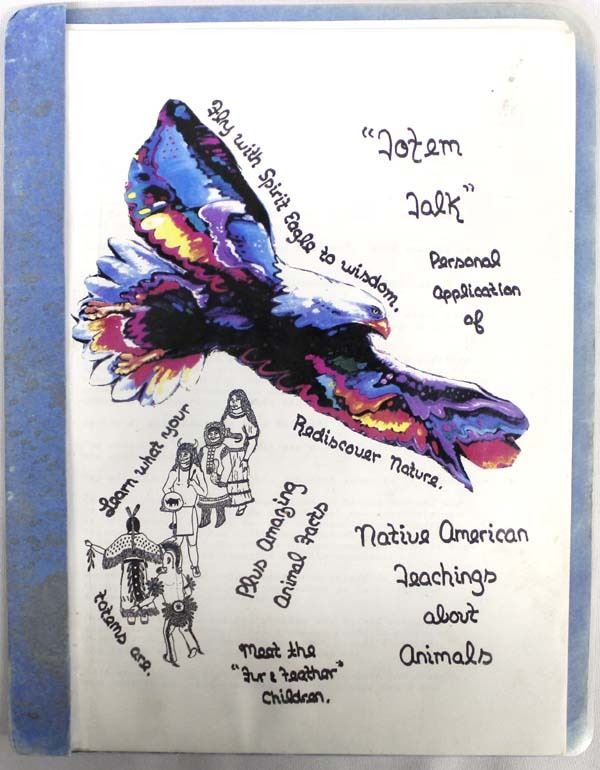 Fly with Spirit Eagle to wisdom.
"Totem
Talk"
Personal
Application
of
Rediscover Nature.
Learn what your
totems are.
Plus Amazing
Animal Facts
Native American
Teachings
about
Animals
Meet the
"Fur & Feather"
Children.